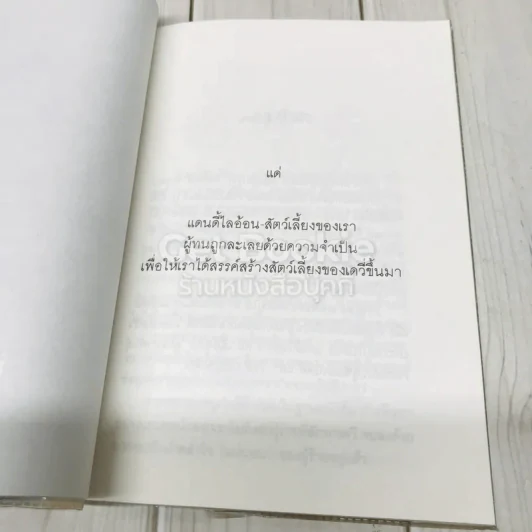 แด่
แดนดี้ไลอ้อน-สัตว์เลี้ยงของเรา
ผู้ทนถูกละเลยด้วยความจำเป็น
เพื่อให้เราได้สรรค์สร้างสัตว์เลี้ยงของเดวี่ขึ้นมา
ร้านหนังสือบุคกี้